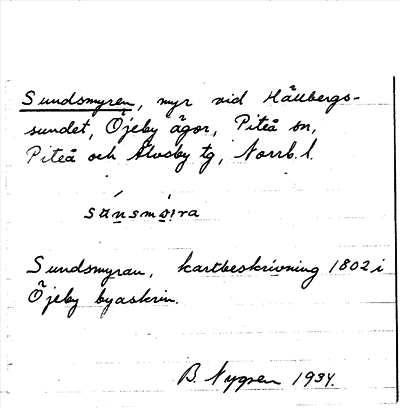 Sundsmyren, myr vid Hällbergs-
sundet, Öjeby ägor, Piteå sn,
Piteå och Älvsby tg, Norrb. l.
Sundsmyran, kartbeskrivning 1802 i
Öjeby byaskrin.
B. Nygren 1934.